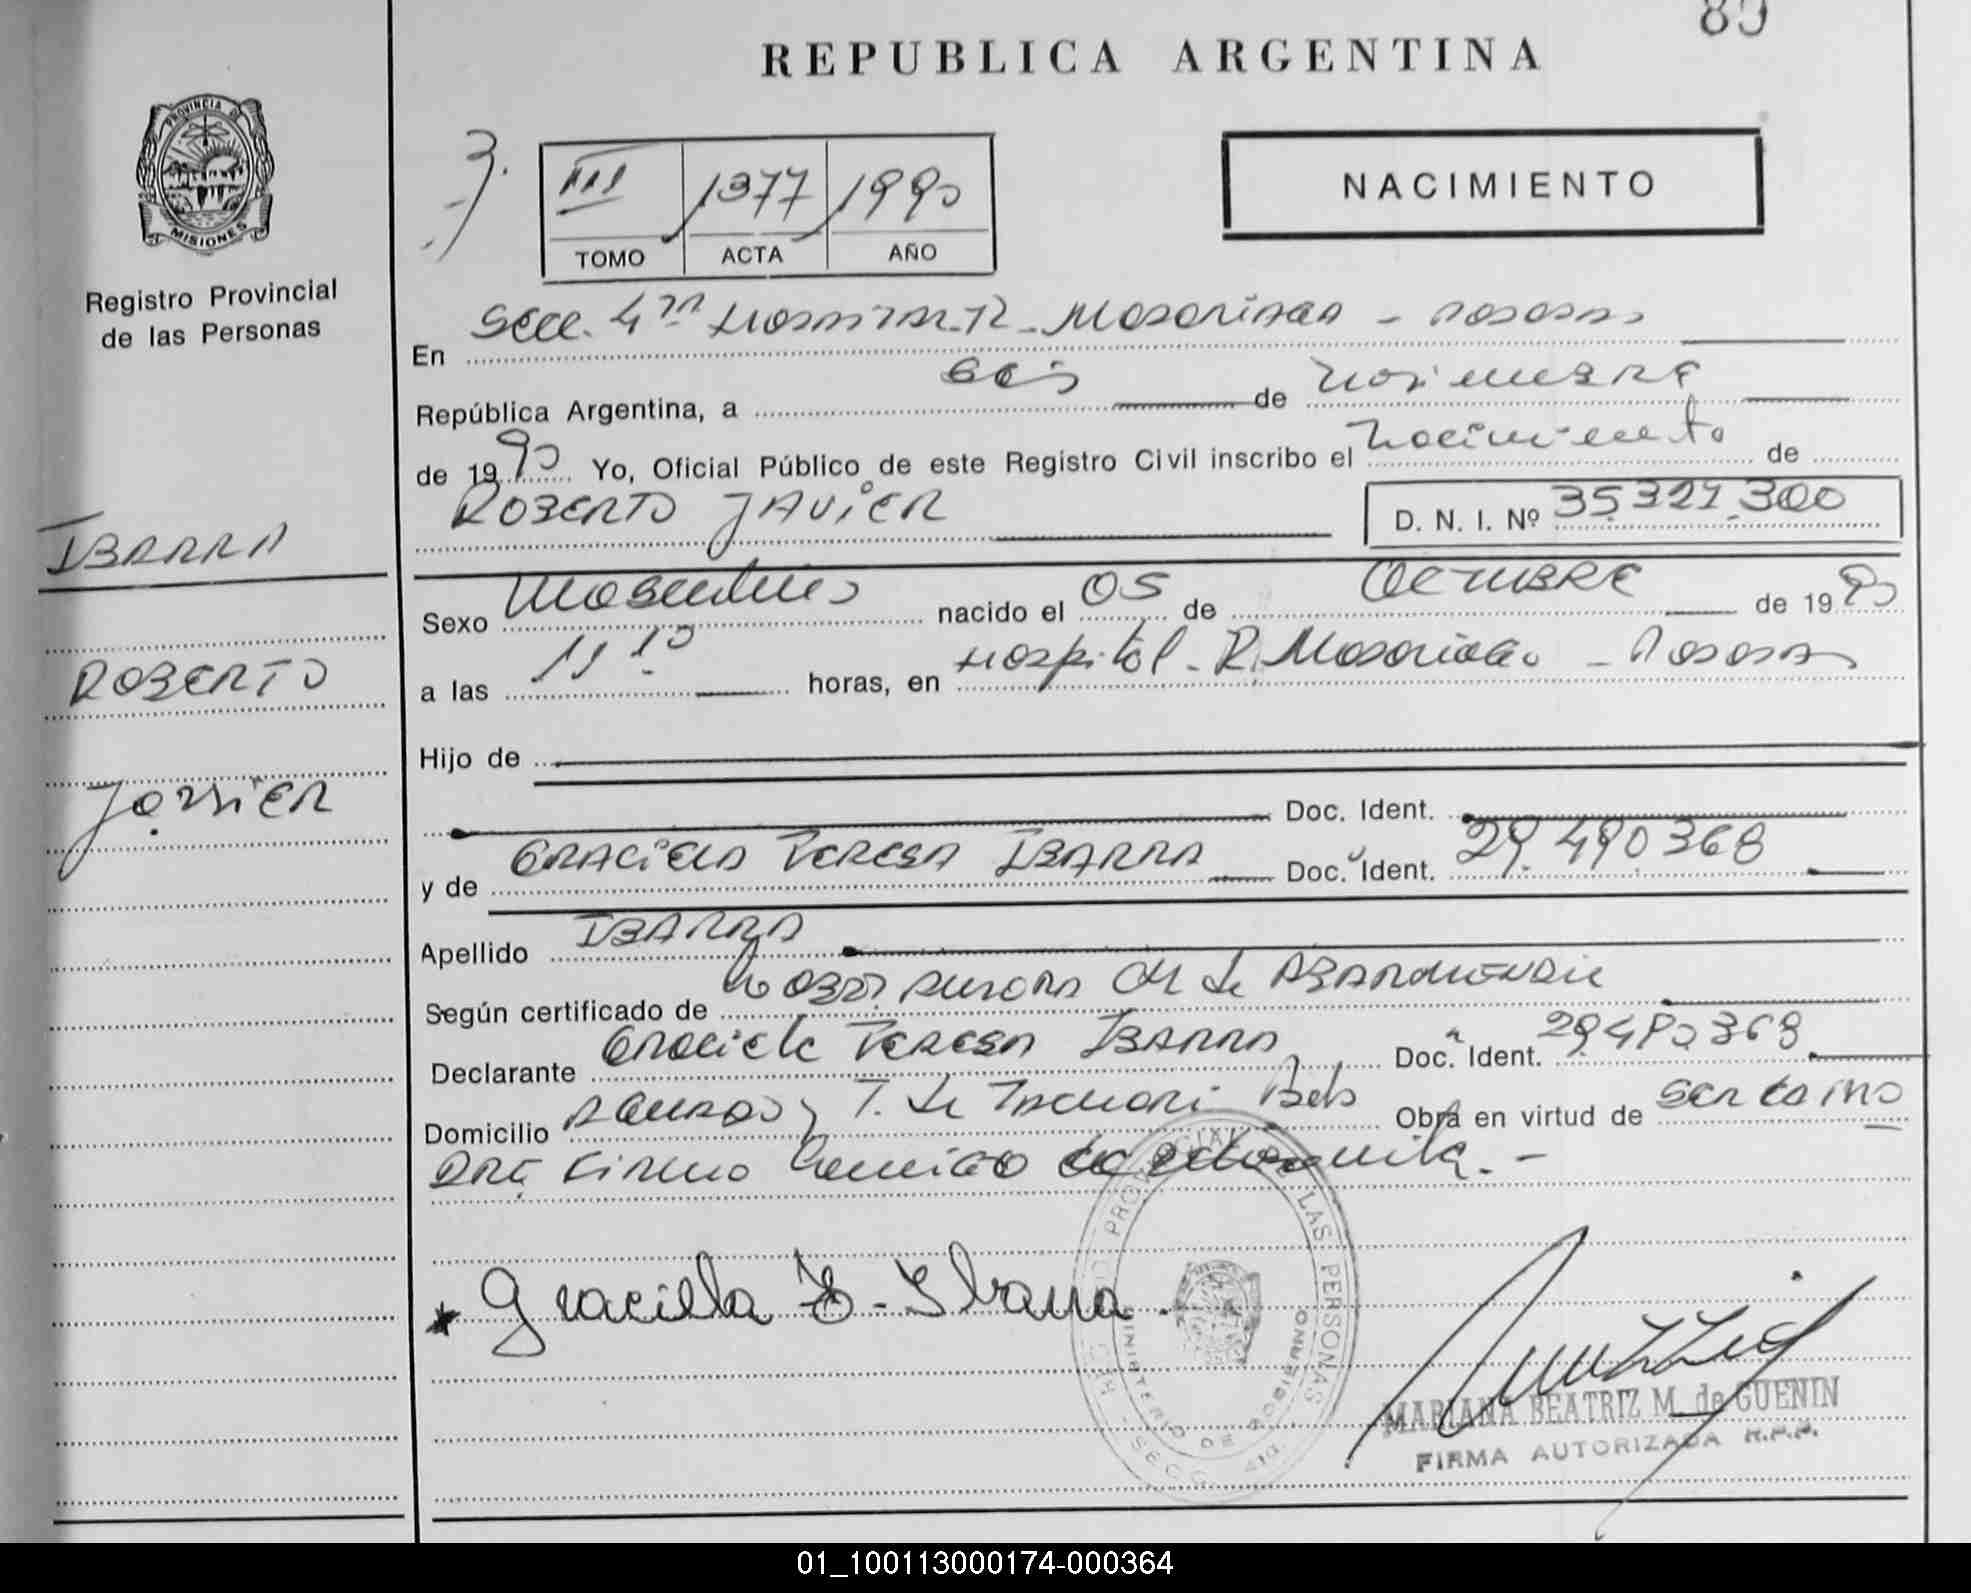 89
REPUBLICA ARGENTINA
PROVINCIA DE
MISIONES
Registro Provincial
de las Personas
III 1377 1990
TOMO ACTA AÑO
NACIMIENTO
En Secc. 4ta Hospital R. Madariaga - Posadas
República Argentina, a seis de noviembre
de 1990 Yo, Oficial Público de este Registro Civil inscribo el nacimiento de
ROBERTO JAVIER D. N. I. Nº 35.327.300
IBARRA
ROBERTO
Javier
Sexo Masculino nacido el 05 de OCTUBRE de 1990
a las 11 10 horas, en Hospital R. Madariaga - Posadas
Hijo de
Doc. Ident.
y de GRACIELA TERESA IBARRA Doc. Ident. 29.490368
Apellido IBARRA
Según certificado de
Declarante Graciela TERESA IBARRA Doc. Ident. 29490368
Domicilio T. de Tacuari Obra en virtud de
Graciela T. Ibarra.
REGISTRO PROVINCIAL DE LAS PERSONAS
MINISTERIO DE GOBIERNO
MARIANA BEATRIZ M. de GUENIN
FIRMA AUTORIZADA R.P.P.
01_100113000174-000364